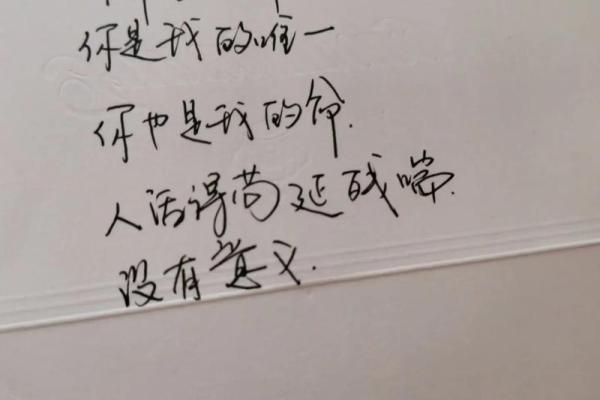 你是我的唯一
你也是我的命.
人活得苟延残喘.
没有意义.